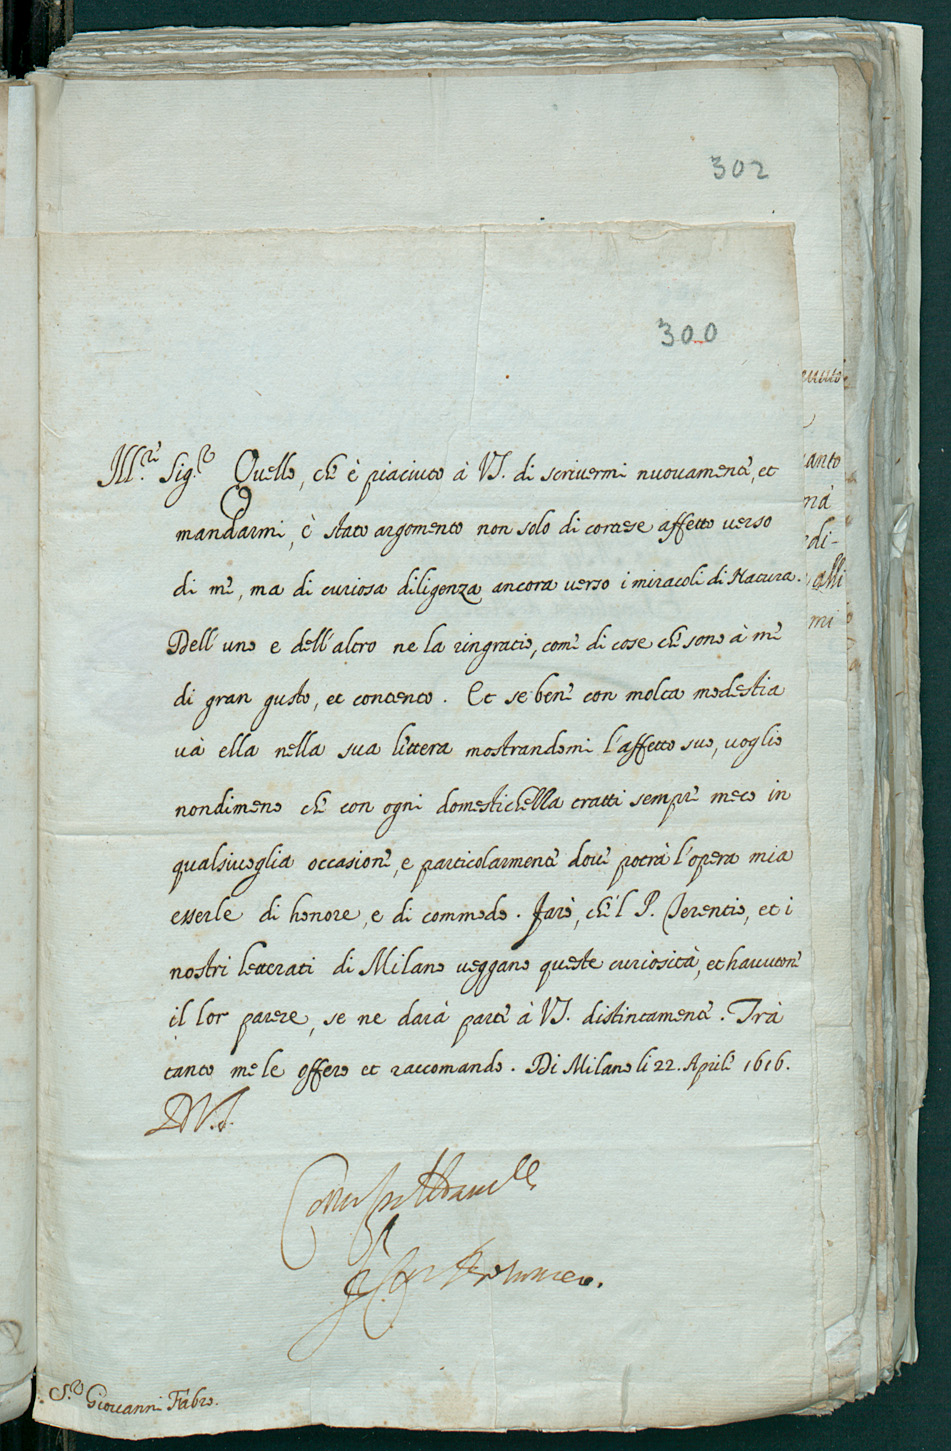 302
300
Ill.re Sig.r Quello, che è piaciuto à VS. di scrivermi nuovamente, et
mandarmi, è stato argomento non solo di cortese affetto verso
di me, ma di curiosa diligenza ancora verso i miracoli di Natura.
Dell'uno e dell'altro ne la ringratio, come di cose che sono à me
di gran gusto, et contento. Et se bene con molta modestia
và ella nella sua lettera mostrandomi l'affetto suo, voglio
nondimeno che con ogni domestichella tratti sempre meco in
qualsivoglia occasione, e particolarmente dove potrà l'opera mia
esserle di honore, e di commodo. Farò, che'l P. Terentio, et i
nostri letterati di Milano veggano queste curiosità, et havutone
il lor parere, se ne darà parte à VS. distintamente. Trà
tanto me le offero et raccomando. Di Milano li 22. Aprile 1616.
D.V.S.
S.r Giovanni Fabro.
anto
nà
edi-
alli
mi